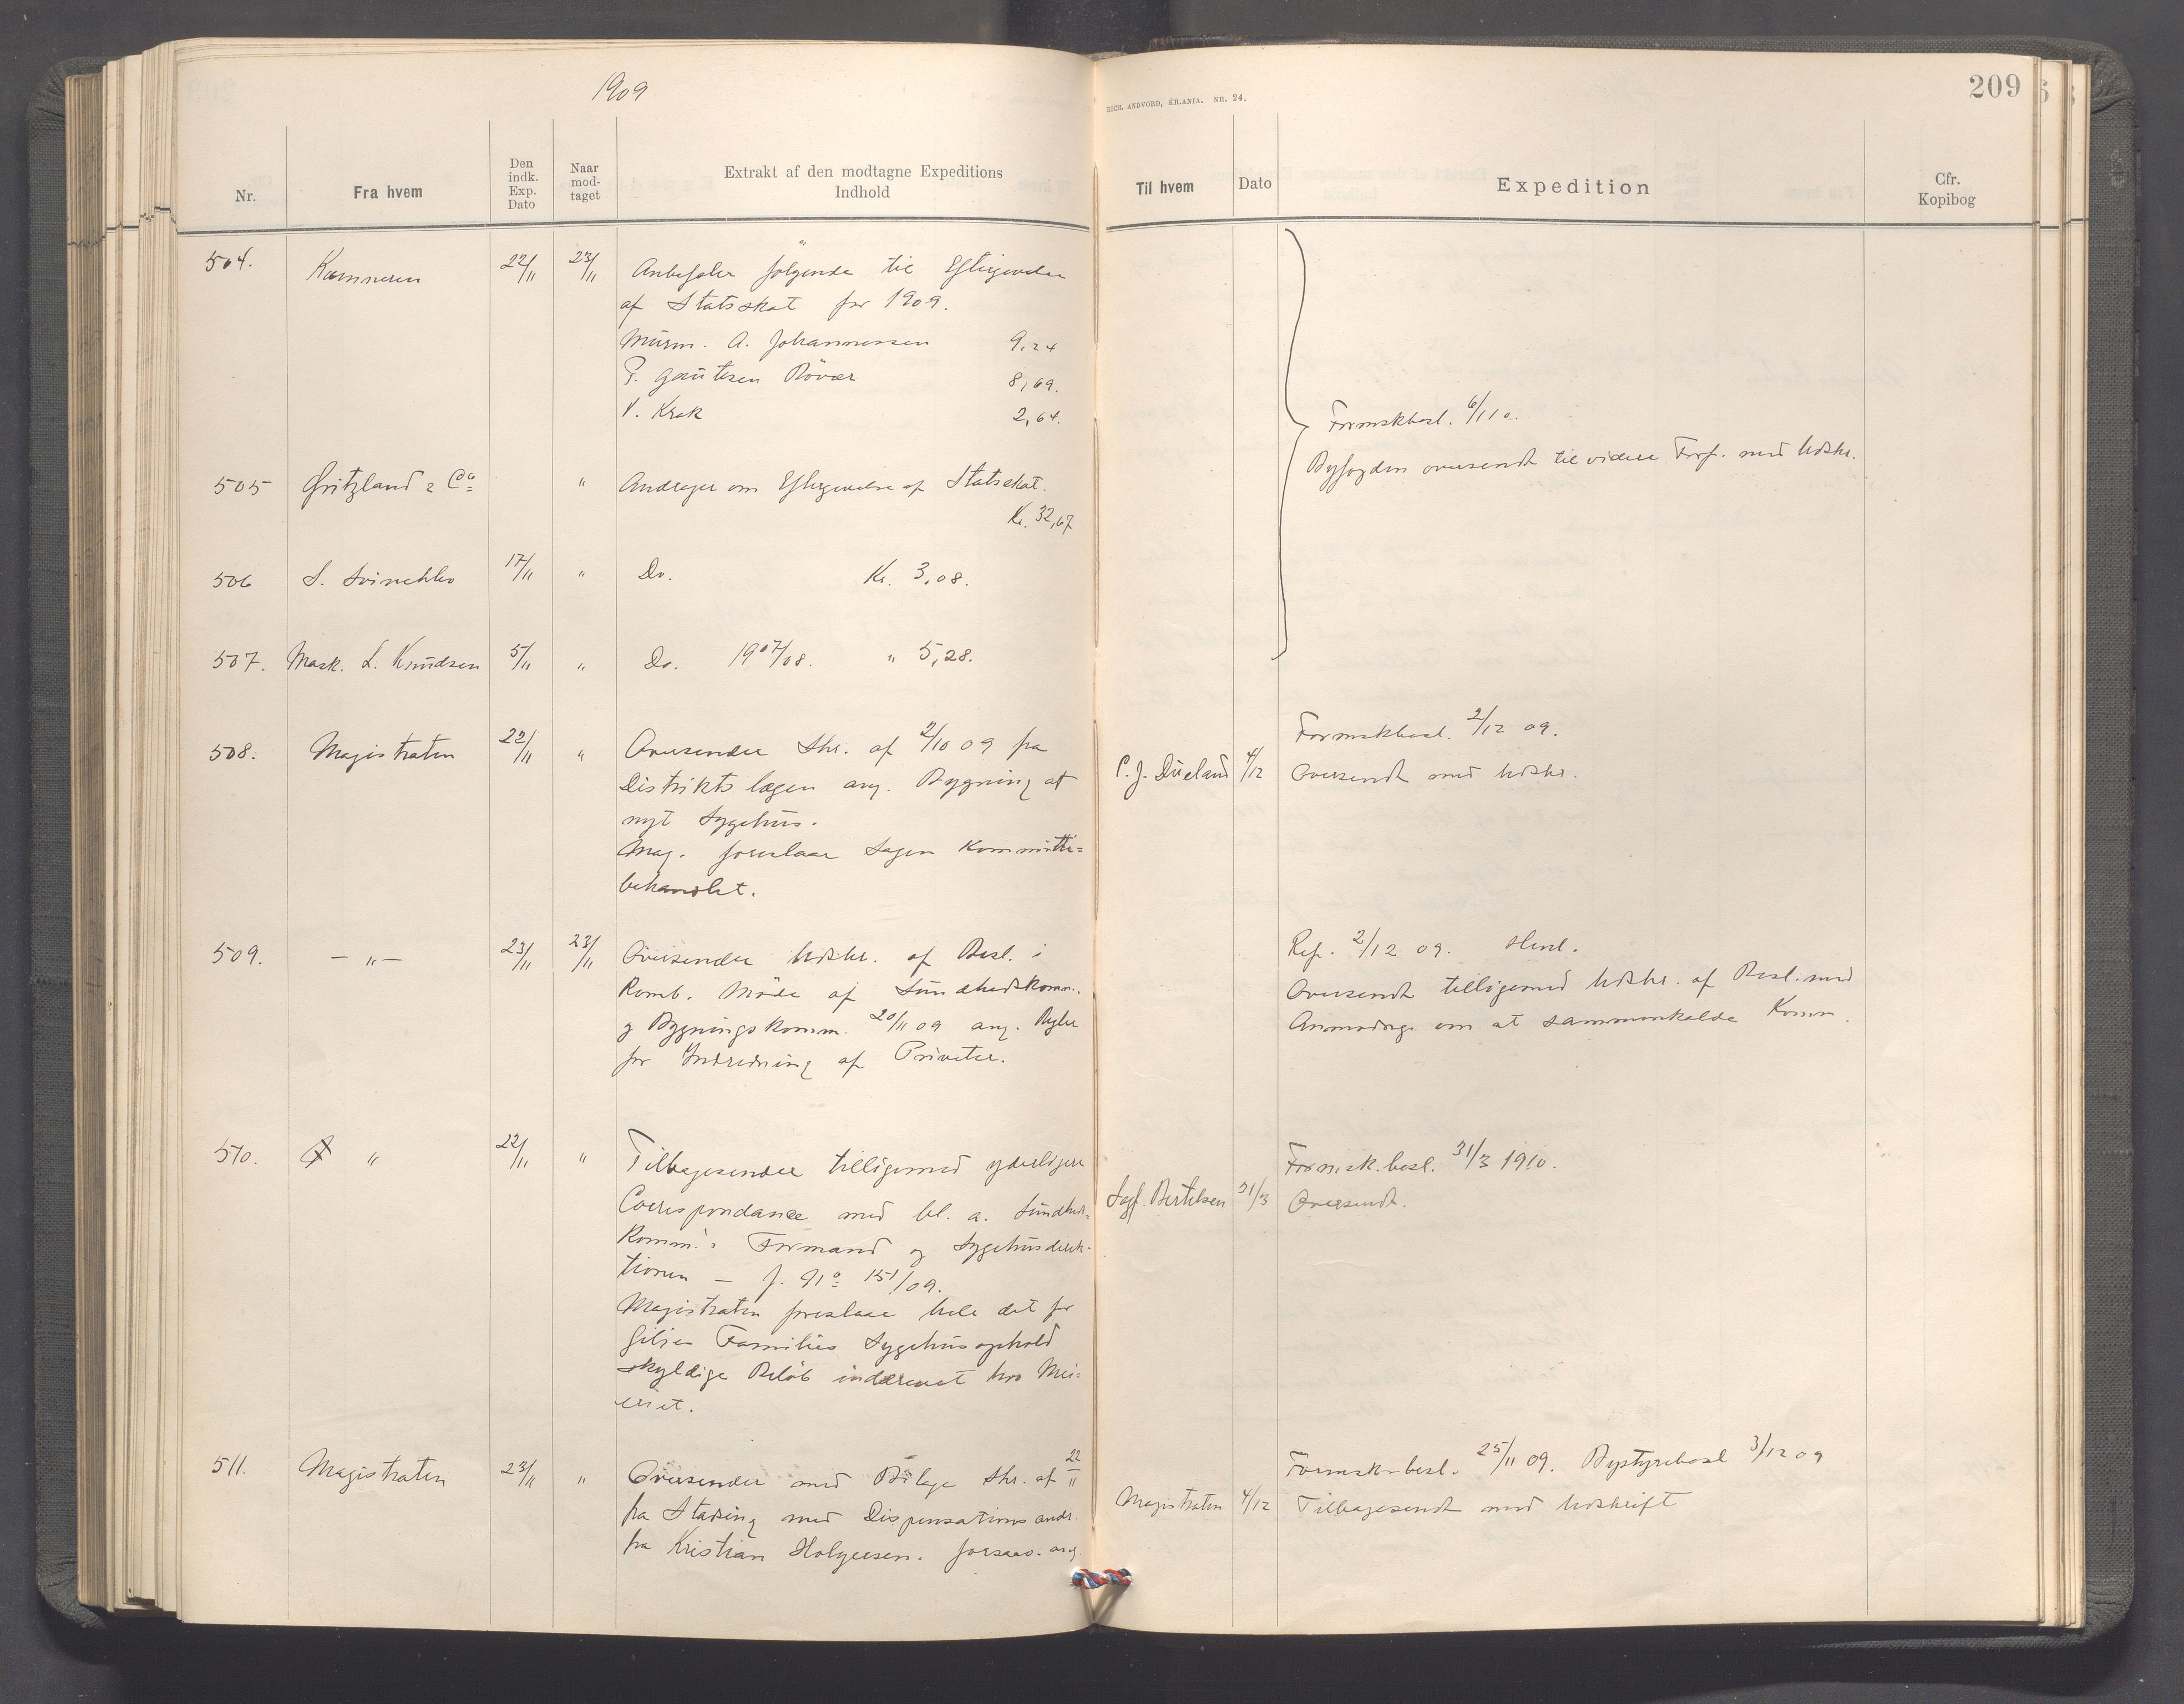 1909
RICH. ANDVORD, KR.ANIA. NR. 24.
209
Nr.
Fra hvem
Den indk. Exp. Dato
Naar mod-taget
Extrakt af den modtagne Expeditions Indhold
Til hvem
Dato
Expedition
Cfr. Kopibog
504. Kæmneren 22/11 23/11 Anbefaler følgende til Eftergivelse
af Statsskat for 1909.
Murm. A. Johannessen 9,24
P. Gautesen Rövær 8,69.
V. Krak 2,64.
Formskbesl. 6/1 10.
Byfogden oversendt til videre Forf. med Udskr.
505 Gritzland & Co " Andrager om Eftergivelse af Statsskat.
Kr. 32,67
506 S. Svinehlev 17/11 " Do. Kr. 3,08.
507. Mask. L. Knudsen 5/11 " Do. 1907/08. " 5,28.
508. Magistraten 22/11 " Oversender Skr. af 2/10 09 fra
Distriktslægen ang. Bygning af
nyt Sygehus.
Mag. foreslaar Sagen Kommitté=
behandlet.
Formskbesl. 2/12 09.
C. J. Dueland 4/12 Oversendt med Udskr.
509. — " — 23/11 23/11 Oversender Udskr. af Besl. i
Komb. Möde af Sundhedskomm.
og Bygningskomm. 20/11 09 ang. Regler
for Indredning af Priveter.
Ref. 2/12 09. Henl.
Oversendt tilligemed Udskr. af Besl. med
Anmodng. om at sammenkalde Komm.
510. " 22/11 " Tilbagesender tilligemed yderligere
Correspondance med bl. a. Sundheds=
Komm.s Formand og Sygehusdirek-
tionen — J. No 151/09.
Magistraten foreslaar hele det for
Giljes Families Sygehusophold
skyldige Beløb inddrevet hos Mei=
eriet.
Formsk.besl. 31/3 1910.
Sagf. Bertelsen 31/3 Oversendt.
511. Magistraten 23/11 " Oversender med Bilage Skr. af 22/11
fra Stading med Dispensations andr.
fra Kristian Holgersen. ang.
Formsk-besl. 25/11 09. Bystyrebesl 3/12 09
Magistraten 4/12 Tilbagesendt med Udskrift